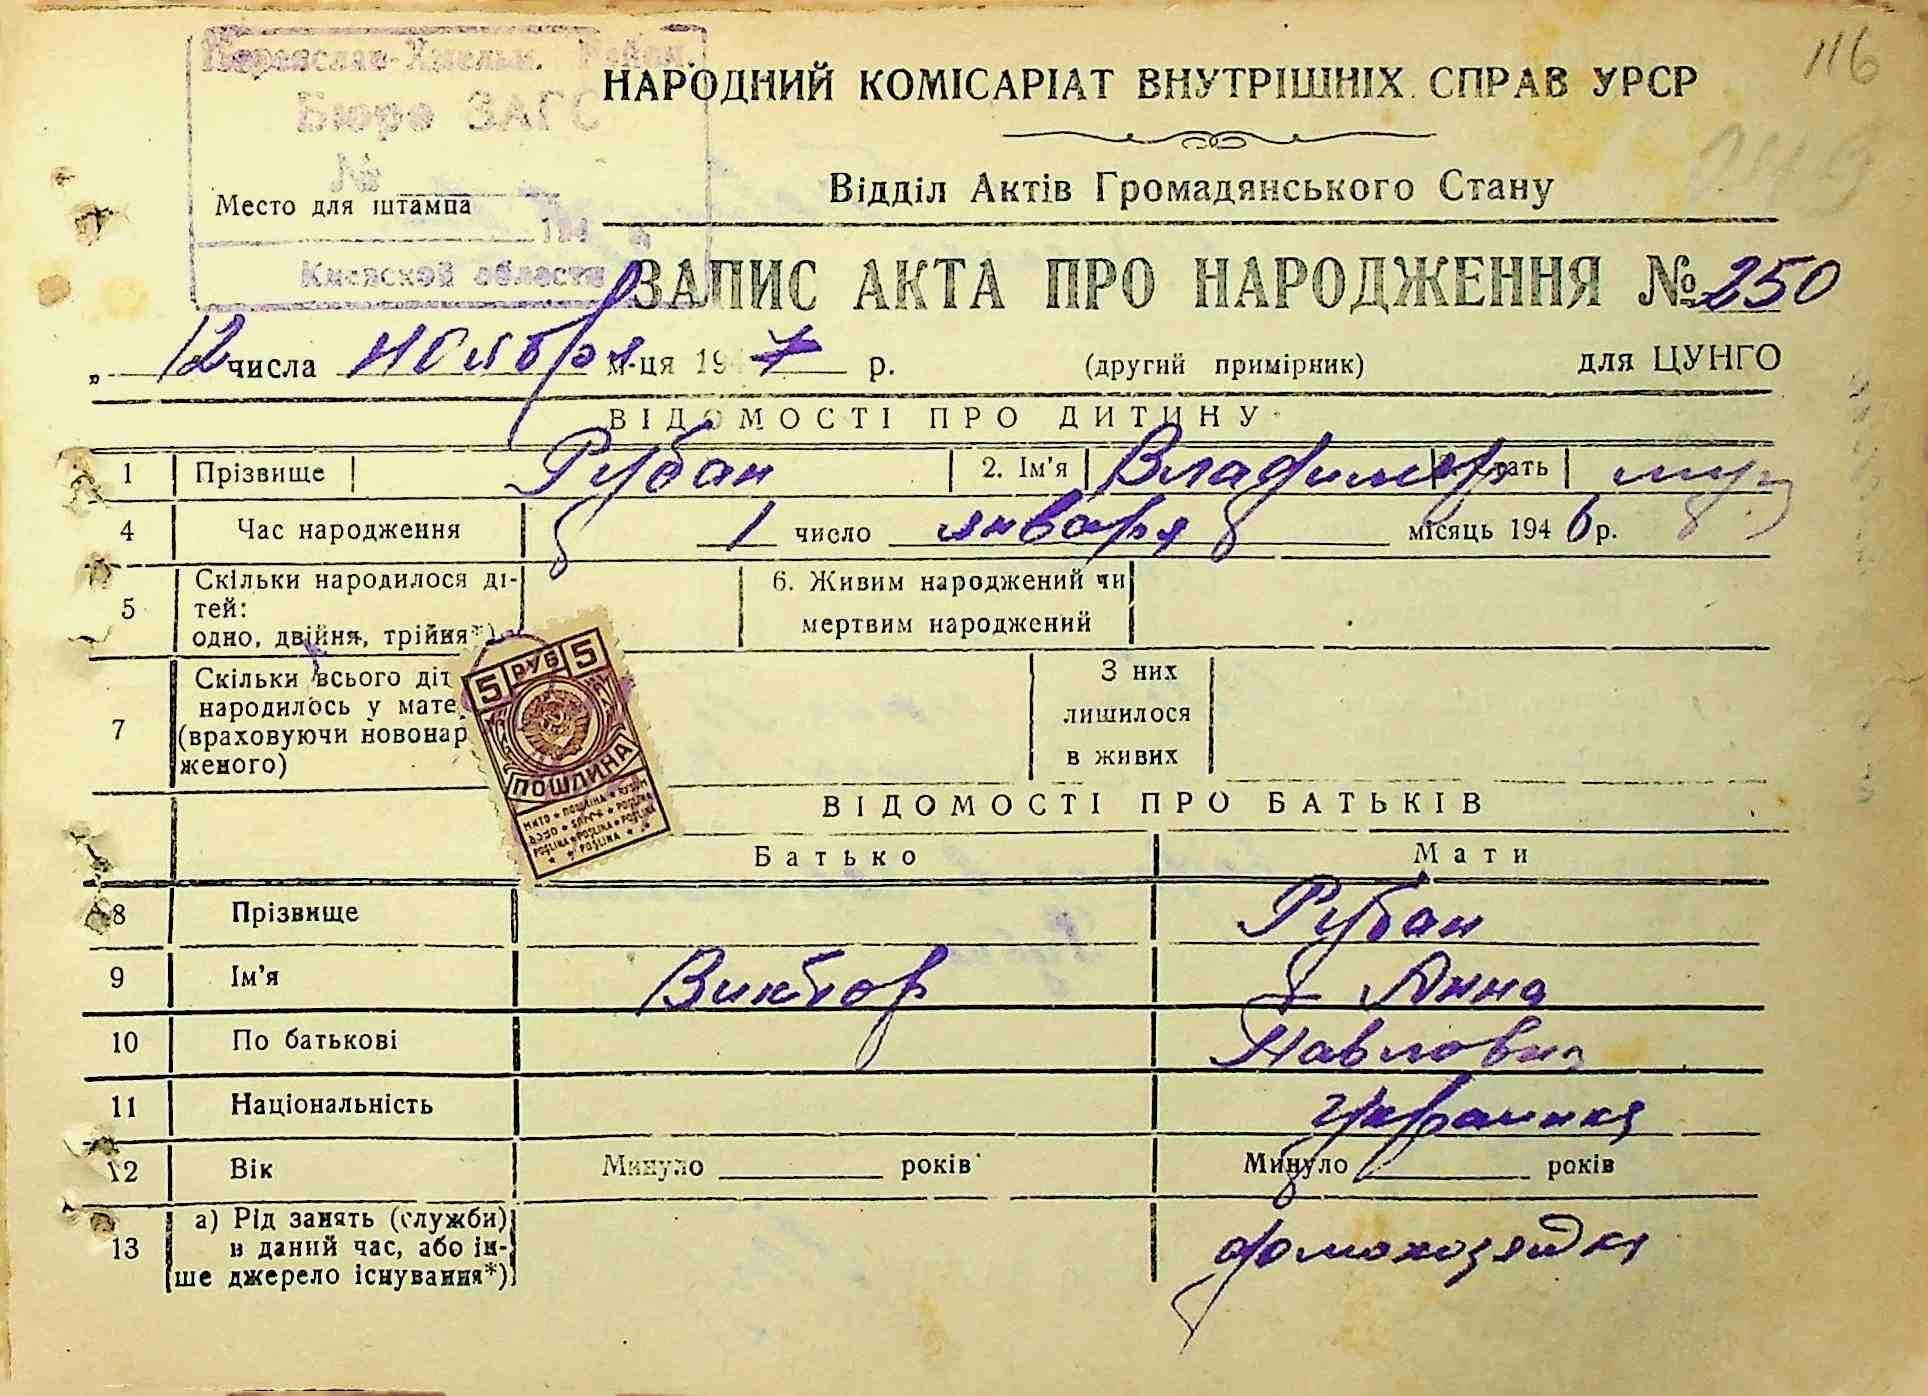 116
249
Переяслав-Хмельн. Район.
Бюро ЗАГС
№
194 г.
Киевской области
Место для штампа
НАРОДНИЙ КОМІСАРІАТ ВНУТРІШНІХ СПРАВ УРСР
Відділ Актів Громадянського Стану
ЗАПИС АКТА ПРО НАРОДЖЕННЯ № 250
„ 12 числа ноября м-ця 1947 р. (другий примірник) для ЦУНГО
ВІДОМОСТІ ПРО ДИТИНУ
1 Прізвище Рубан 2. Ім'я Владимир стать муж
4 Час народження 1 число января місяць 1946 р.
5 Скільки народилося ді-
тей:
одно, двійня, трійня*)
6. Живим народжений чи
мертвим народжений
7 Скільки всього діт
народилось у мате
(враховуючи новонар
женого)
З них
лишилося
в живих
5 РУБ 5
ПОШЛИНА
ВІДОМОСТІ ПРО БАТЬКІВ
Батько Мати
8 Прізвище Рубан
9 Ім'я Виктор Анна
10 По батькові Павловна
11 Національність украинка
12 Вік Минуло років Минуло років
13 а) Рід занять (служби)
в даний час, або ін-
ше джерело існування*)
домохозяйка